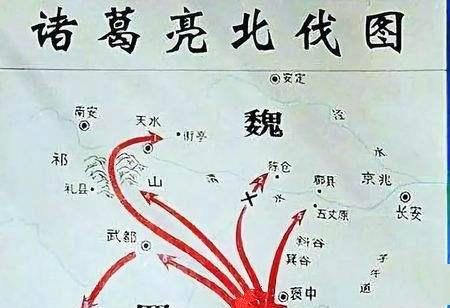 诸葛亮北伐图
安定
南安
天水
街亭
魏
泾
水
祁
山
礼县
渭
水
陈仓
郿县
京兆
五丈原
长安
武都
斜谷
箕谷
子
午
道
褒中